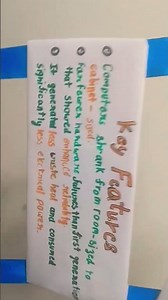 Key Features
Computers shrank from room-sized to
cabinet-sized.
Far fewer hardware failures than first generation
that showed enhanced reliability
It generated less waste heat and consumed
significantly less electrical power.